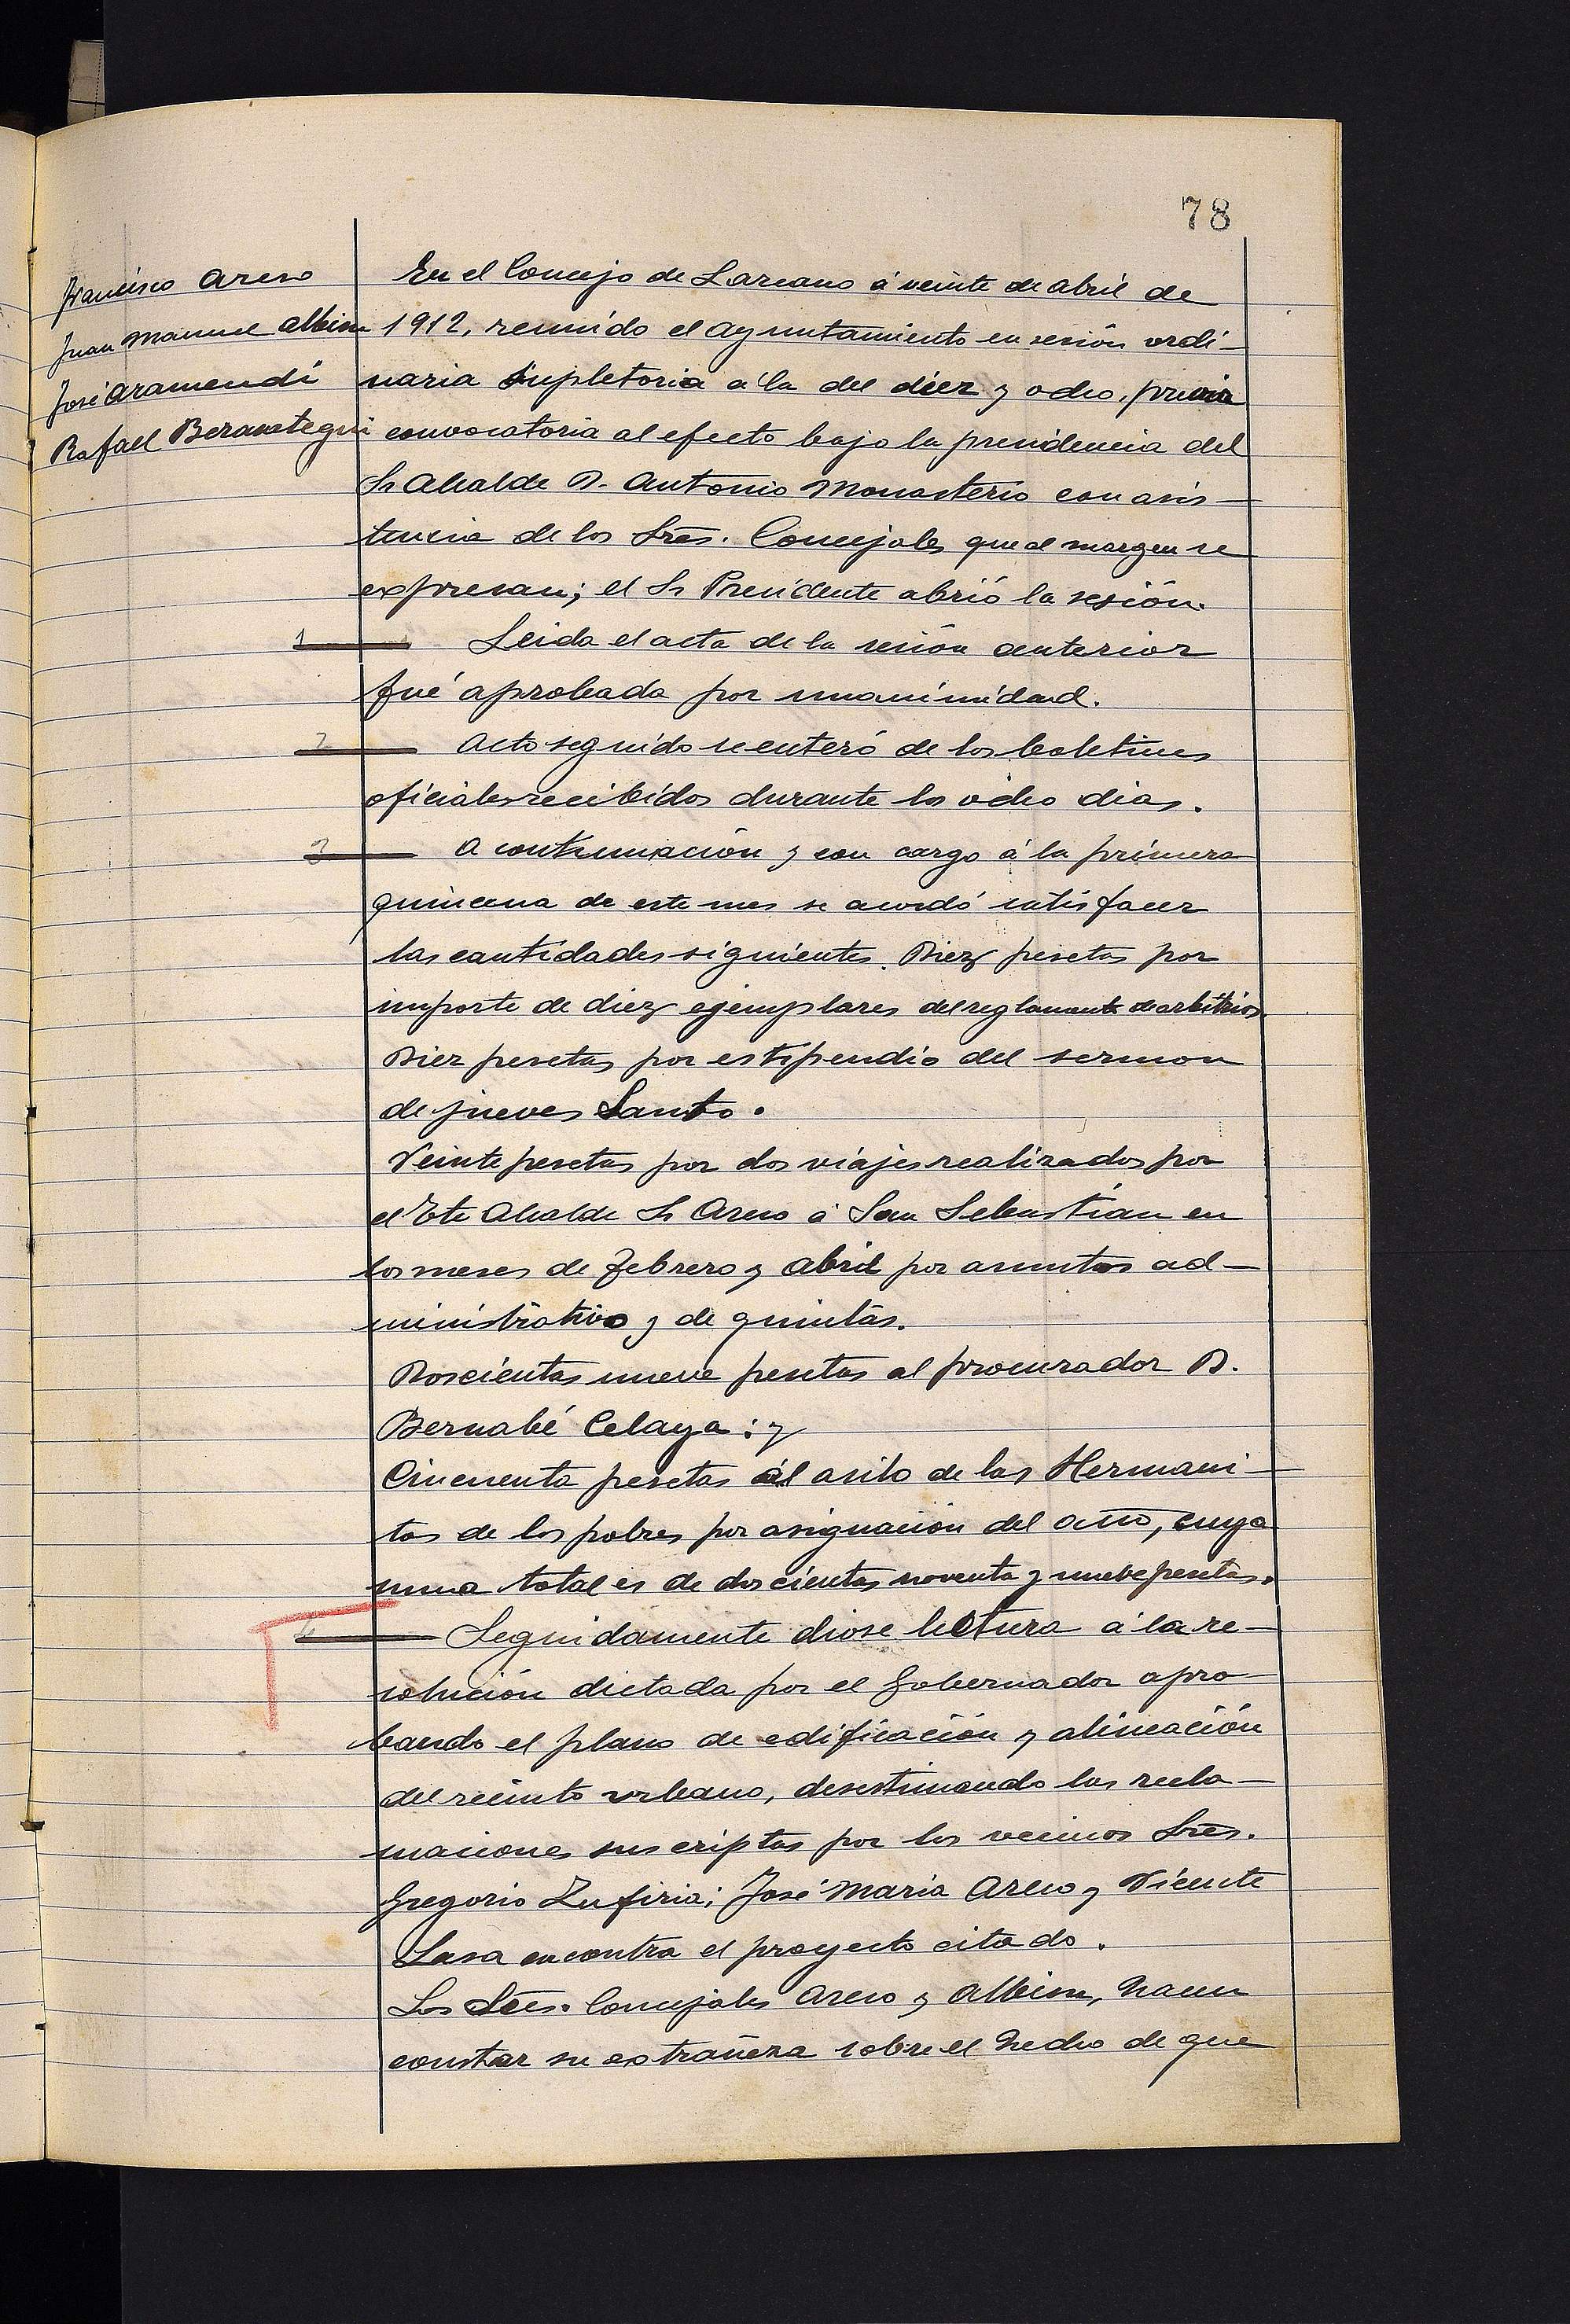 78
Francisco Areso
Juan Manuel Albisu
José Aramendi
Rafael Berasategui
En el Concejo de Lazcano á veinte de abril de
1912, reunido el ayuntamiento en sesión ordi-
naria supletoria á la del diez y ocho, previa
convocatoria al efecto bajo la presidencia del
Sr Alcalde D. Antonio Monasterio con asis-
tencia de los Sres. Concejales que al margen se
expresan; el Sr Presidente abrió la sesión.
1 Leida el acta de la sesión anterior
fué aprobada por unanimidad.
2 Acto seguido se enteró de los boletines
oficiales recibidos durante los ocho dias.
3 A continuación y con cargo á la primera
quincena de este mes se acordó satisfacer
las cantidades siguientes. Diez pesetas por
importe de diez ejemplares del reglamento de arbitrios.
Diez pesetas por estipendio del sermon
de jueves Santo.
Veinte pesetas por dos viajes realizados por
el Tte Alcalde Sr Areso á San Sebastián en
los meses de febrero y abril por asuntos ad-
ministrativo y de quintas.
Doscientas nueve pesetas al procurador D.
Bernabé Celaya: y
Cincuenta pesetas al asilo de las Hermani-
tas de los pobres por asignación del año, cuya
suma total es de doscientas noventa y nueve pesetas.
4 Seguidamente diose lectura á la re-
solución dictada por el Gobernador apro-
bando el plano de edificación y alineación
del recinto urbano, desestimando las recla-
maciones suscriptas por los vecinos Sres.
Gregorio Zufiria; José Maria Areso y Vicente
Lasa en contra el proyecto citado.
Los Sres. Concejales Areso y Albisu, hacen
constar su extrañeza sobre el hecho de que